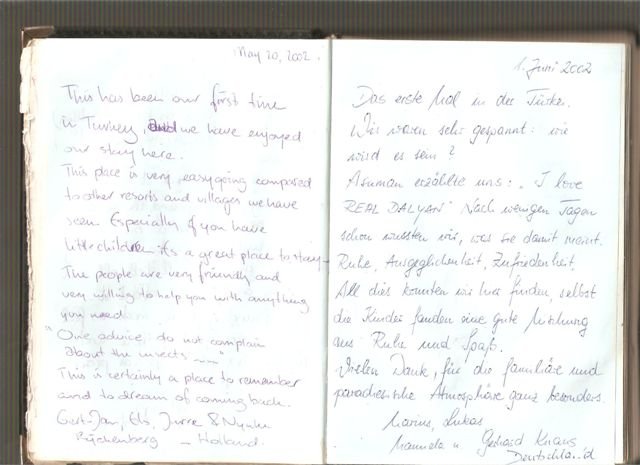 May 20, 2002.
This has been our first time
in Turkey, and we have enjoyed
our stay here.
This place is very easygoing compared
to other resorts and villages we have
seen. Especially if you have
little children it's a great place to stay.
The people are very friendly and
very willing to help you with anything
you need.
"One advice: do not complain
about the insects
This is certainly a place to remember
and to dream of coming back.
Gert-Jan, Els, Jurre &
Büchenberg - Holland.
1. Juni 2002
Das erste Mal in der Türkei.
Wir waren sehr gespannt: wie
wird es sein?
Asuman erzählte uns: „I love
REAL DALYAN" Nach wenigen Tagen
schon wussten wir, was sie damit meint.
Ruhe, Ausgeglichenheit, Zufriedenheit.
All dies konnten wir hier finden, selbst
die Kinder fanden eine gute Mischung
aus Ruhe und Spaß.
Vielen Dank, für die familiäre und
paradiesische Atmosphäre ganz besonders.
Marius, Lukas
Manuela u. Gerhard Knaus
Deutschland